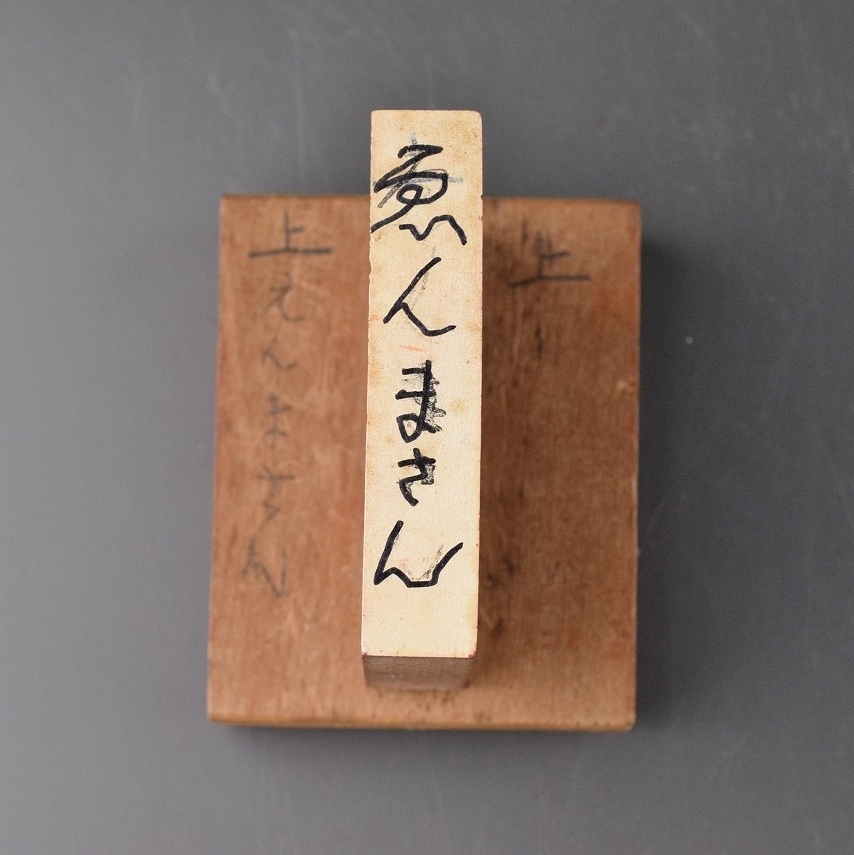 上
ゑんまさん
上
えんまさん